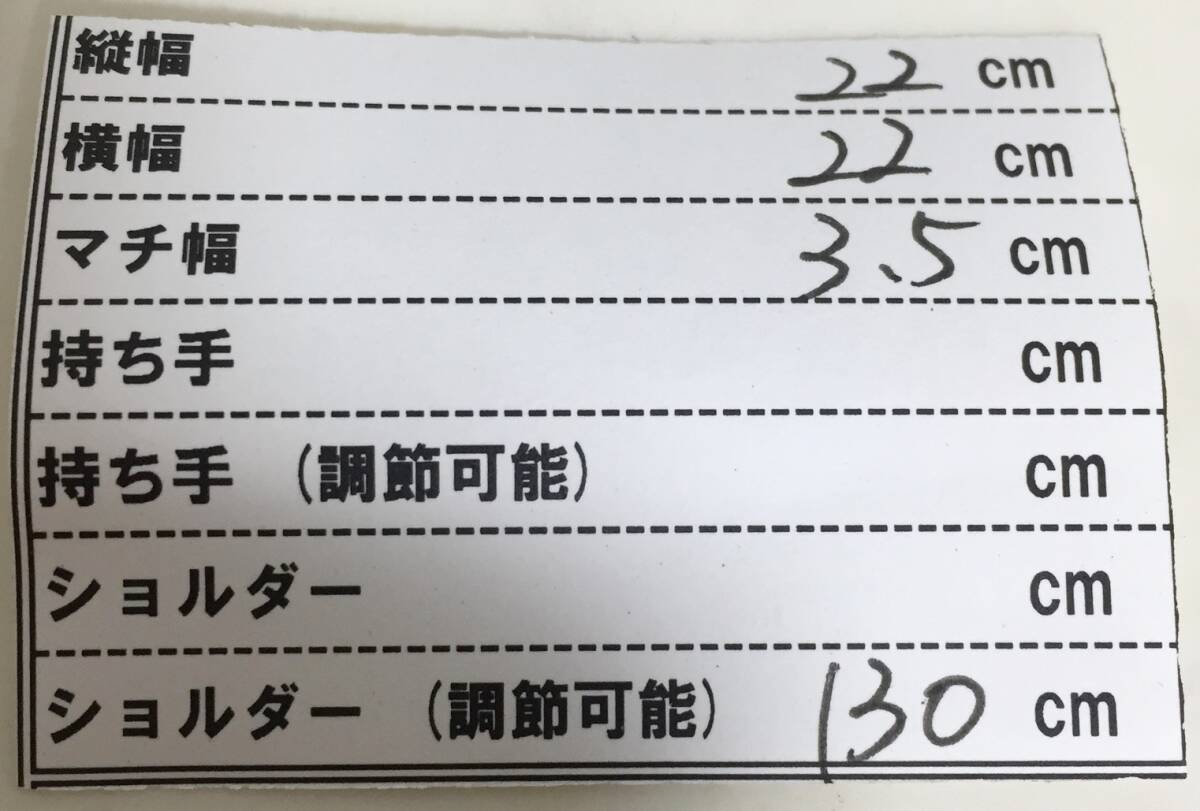 縦幅 22 cm
横幅 22 cm
マチ幅 3.5 cm
持ち手 cm
持ち手 (調節可能) cm
ショルダー cm
ショルダー (調節可能) 130 cm